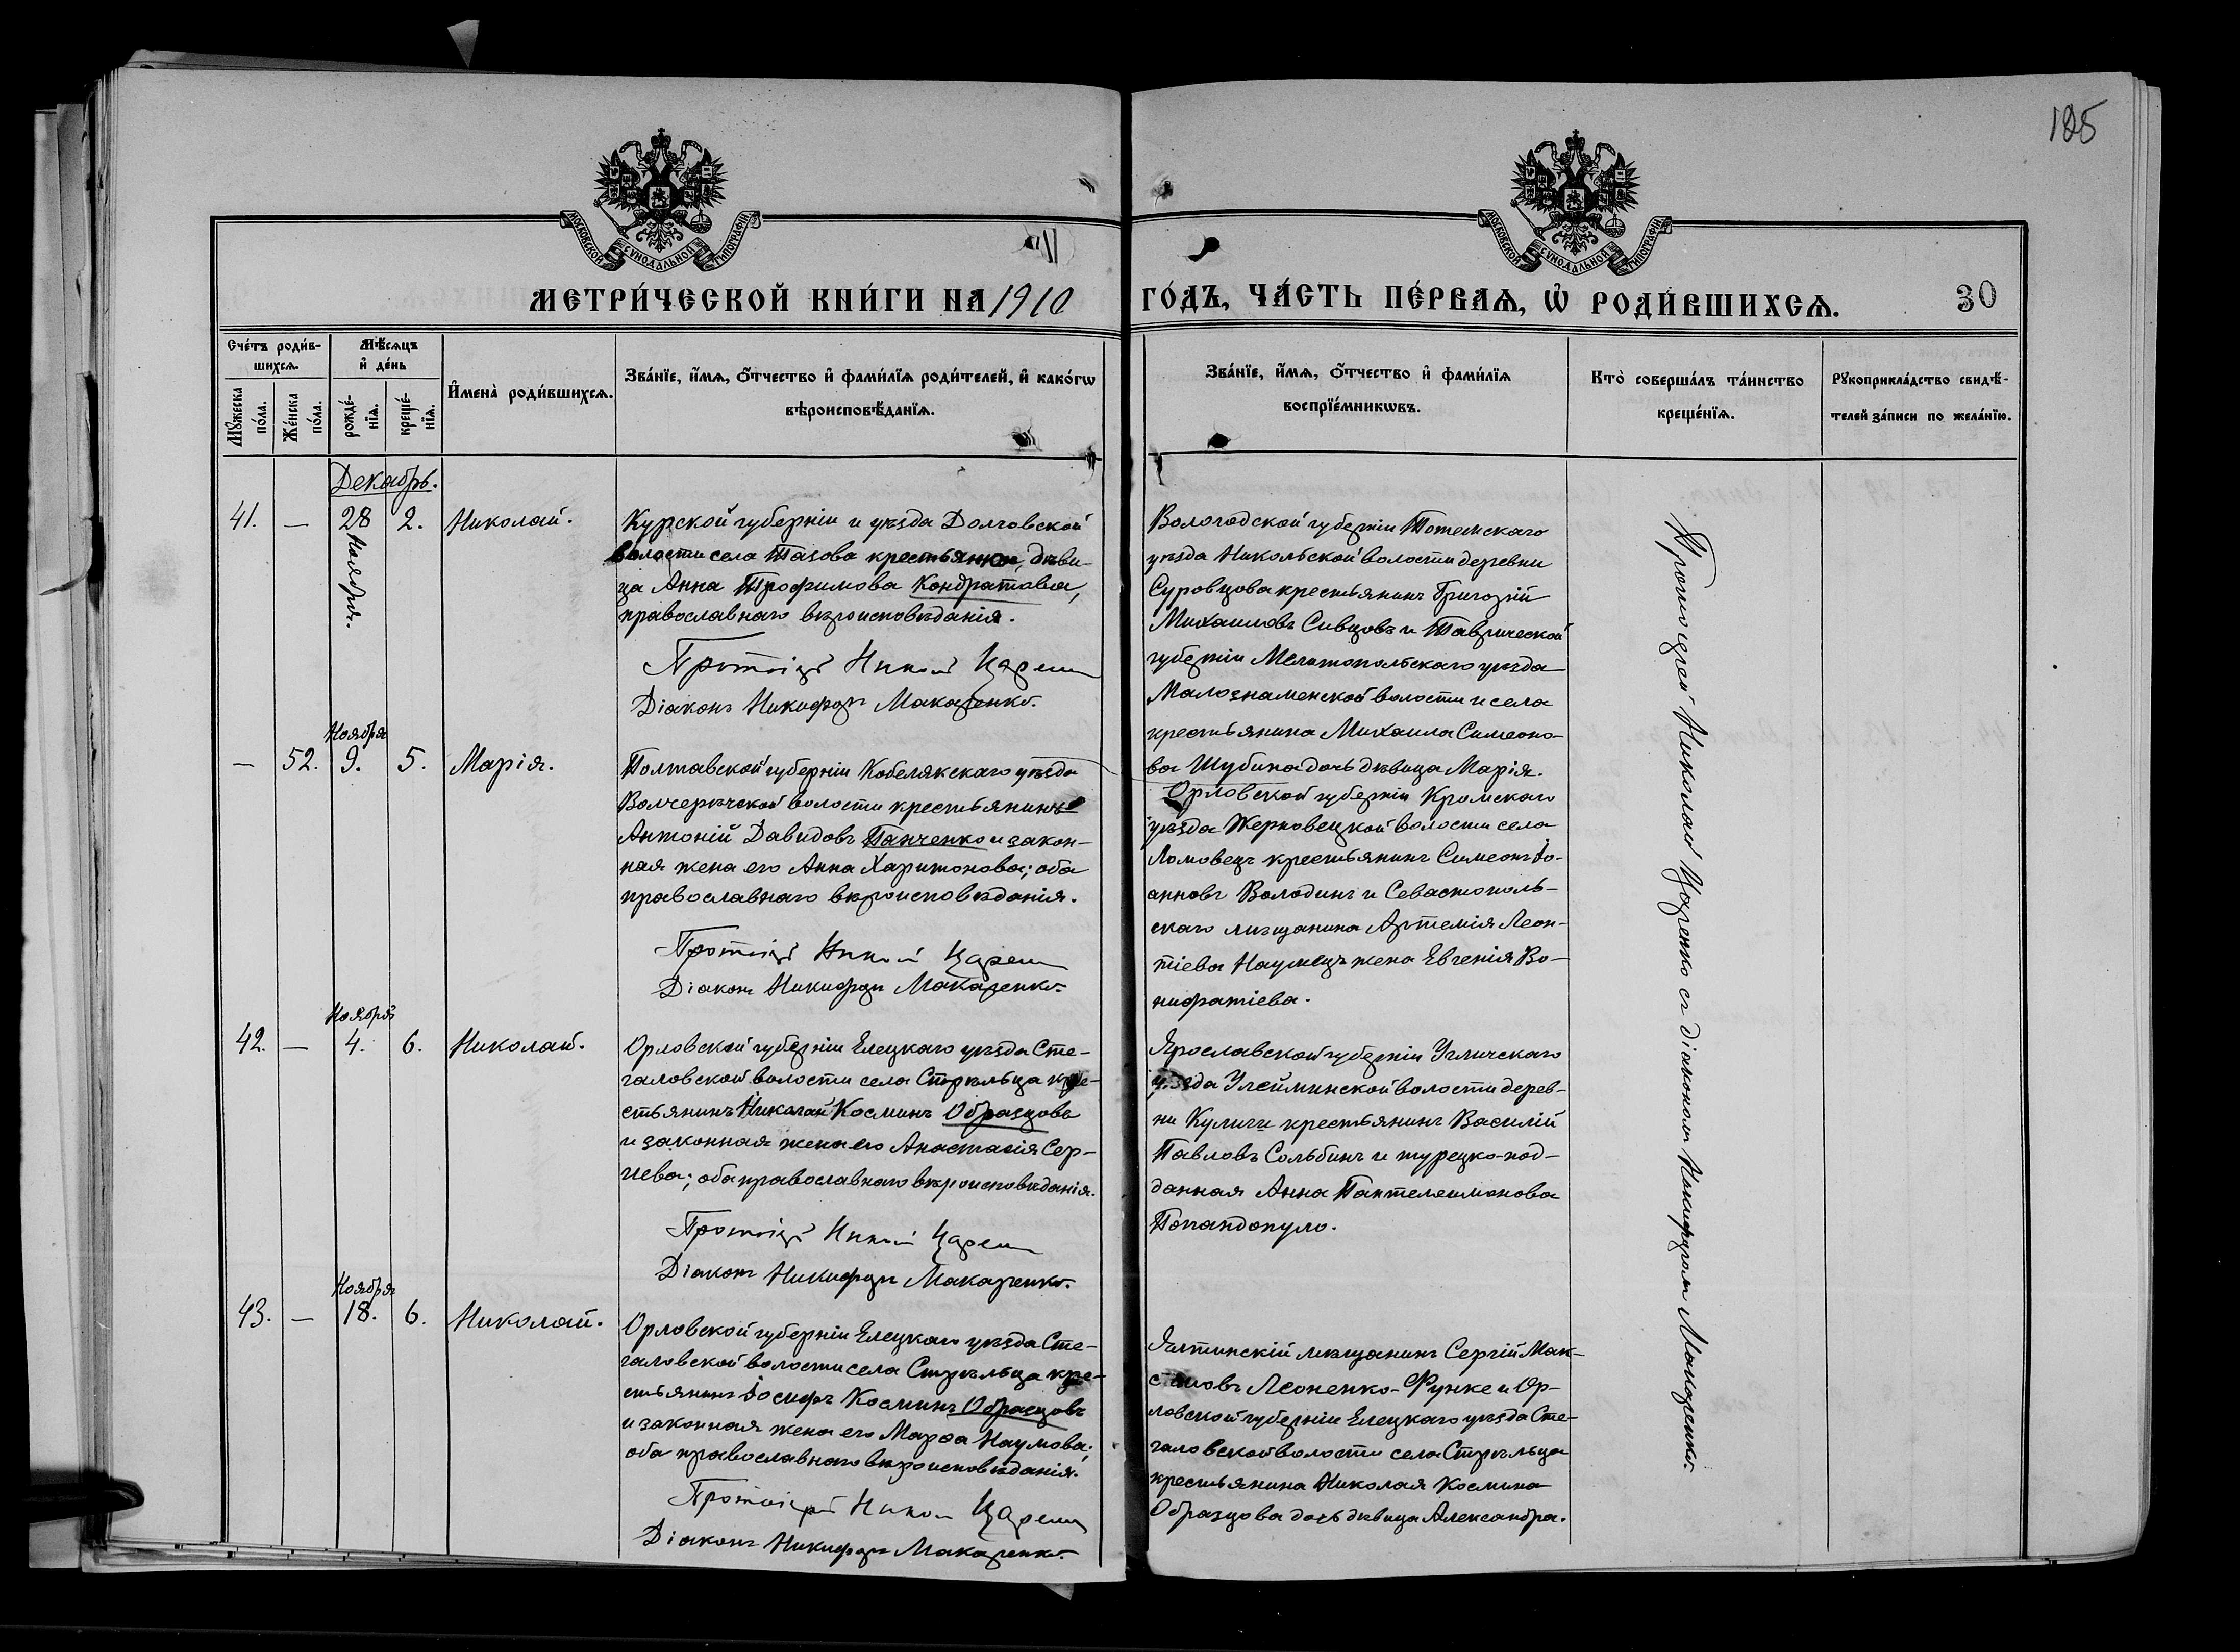 185
МОСКОВСКОЙ СѴНОДАЛЬНОЙ ТИПОГРАФІИ
МОСКОВСКОЙ СѴНОДАЛЬНОЙ ТИПОГРАФІИ
МЕТРИ́ЧЕСКОЙ КНИ́ГИ НА 1910
ГО́ДЪ, ЧА́СТЬ ПЕ́РВАѦ, Ѽ РОДИ́ВШИХСѦ.
30
Сче́тъ роди́в-
шихсѧ.
Мꙋ́жеска
по́ла.
Же́нска
по́ла.
Мѣ́сѧцъ
и҆ де́нь
рожде́-
нїѧ.
креще́-
нїѧ.
И҆мена̀ роди́вшихсѧ.
Зва́нїе, и҆́мѧ, ѻ҆́тчество и҆ фами́лїѧ роди́телей, и҆ како́гѡ
вѣроисповѣ́данїѧ.
Зва́нїе, и҆́мѧ, ѻ҆́тчество и҆ фами́лїѧ
воспрїе́мникѡвъ.
Кто̀ соверша́лъ та́инство
креще́нїѧ.
Рꙋкоприкла́дство свидѣ́-
телей за́писи по жела́нїю.
Декабрь.
41. — 28 Ноября. 2. Николай.
Курской губерніи и уѣзда Долговской
волости села Тазова крестьянка, дѣви-
ца Анна Трофимова Кондратова,
православнаго вѣроисповѣданія.
Діаконъ Никифоръ Макаренко.
Вологодской губерніи Тотемскаго
уѣзда Никольской волости деревни
Суровцова крестьянинъ Григорій
Михаиловъ Сивцовъ и Таврической
губерніи Мелитопольскаго уѣзда
Малознаменской волости и села
крестьянина Михаила Симеоно-
ва Шубина дочь дѣвица Марія.
— 52. Ноября 9. 5. Марія.
Полтавской губерніи Кобелякскаго уѣзда
Волчерѣчской волости крестьянинъ
Антоній Давидовъ Панченко и закон-
ная жена его Анна Харитонова; оба
православнаго вѣроисповѣданія.
Діаконъ Никифоръ Макаренко.
Орловской губерніи Кромскаго
уѣзда Жерновецкой волости села
Ломовецъ крестьянинъ Симеонъ Іо-
анновъ Володинъ и Севастополь-
скаго мѣщанина Артемія Леон-
тіева Наумецъ жена Евгенія Во-
нифатіева.
42. — Ноября 4. 6. Николай.
Орловской губерніи Елецкаго уѣзда Сте-
галовской волости села Стрѣльца кре-
стьянинъ Николай Косминъ Образцовъ
и законная жена его Анастасія Сер-
гіева; оба православнаго вѣроисповѣданія.
Діаконъ Никифоръ Макаренко.
Ярославской губерніи Угличскаго
уѣзда Улейминской волости дерев-
ни Куличи крестьянинъ Василій
Павловъ Сольбинъ и турецко-под-
данная Анна Пантелеимонова
Попандопуло.
43. — Ноября 18. 6. Николай.
Орловской губерніи Елецкаго уѣзда Сте-
галовской волости села Стрѣльца кре-
стьянинъ Іосифъ Косминъ Образцовъ
и законная жена его Марѳа Наумова;
оба православнаго вѣроисповѣданія.
Діаконъ Никифоръ Макаренко.
Ялтинскій мѣщанинъ Сергій Мак-
Леоненко-Функе и Ор-
ловской губерніи Елецкаго уѣзда Сте-
галовской волости села Стрѣльца
крестьянина Николая Космина
Образцова дочь дѣвица Александра.
Протоіерей Николай Царенко съ діакономъ Никифоромъ Макаренко.